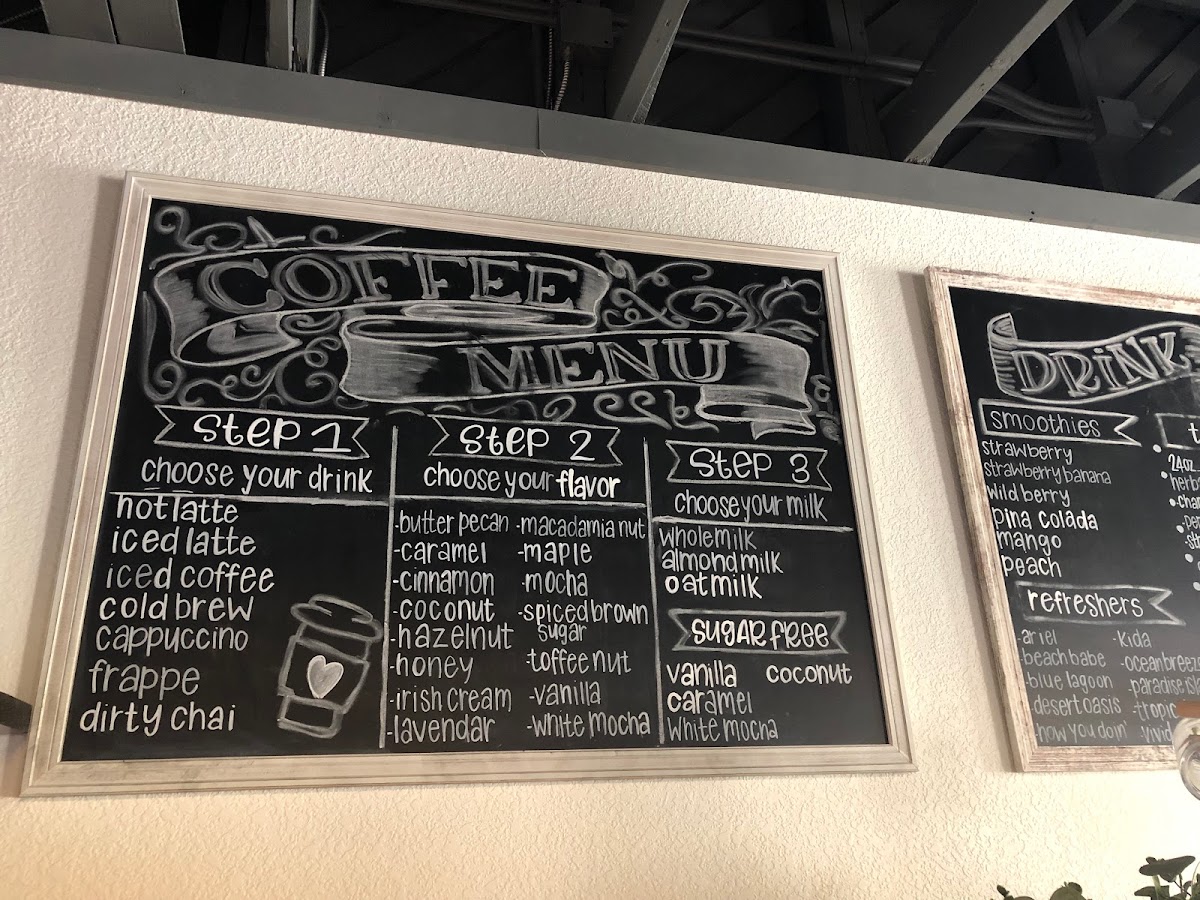 COFFEE
MENU
step 1
choose your drink
hot latte
iced latte
iced coffee
cold brew
cappuccino
frappe
dirty chai
step 2
choose your flavor
-butter pecan
-caramel
-cinnamon
-coconut
-hazelnut
-honey
-irish cream
-lavendar
-macadamia nut
-maple
-mocha
-spiced brown
sugar
-toffee nut
-vanilla
-white mocha
step 3
choose your milk
whole milk
almond milk
oat milk
sugar free
vanilla coconut
caramel
white mocha
DRiNK
smoothies
strawberry
strawberry banana
wild berry
pina colada
mango
peach
refreshers
-ariel
-beach babe
-blue lagoon
-desert oasis
-how you doin'
-kida
-ocean breeze
-paradise isla
-tropic
-vivid
t
24oz
herb